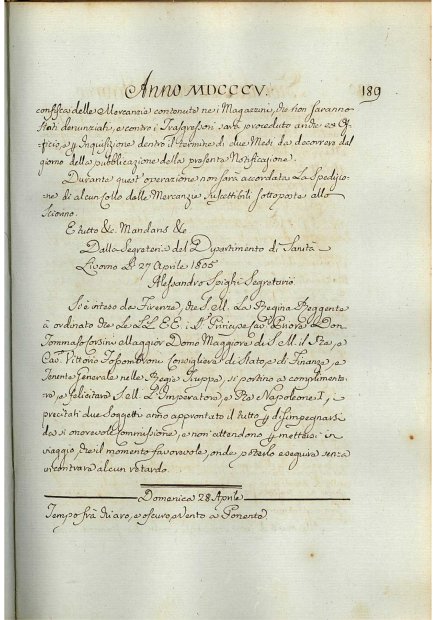 Anno MDCCCV. 189
confisca delle Mercanzie contenute nei Magazzini, che non saranno
stati denunziati, e contro i Trasgressori sarà proceduto anche ex Of-
ficio, e p Inquisizione dentro il termine di due Mesi da decorrere dal
giorno della pubblicazione della presente Notificazione.
Durante quest'operazione non sarà accordata La Spedizio-
ne di alcun Collo delle Mercanzie suscettibili sottoposte allo
Sciorino.
E tutto &c. Mandans &c
Dalla Segreteria del Dipartimento di Sanità
Livorno Li 27 Aprile 1805
Alessandro Spighi Segretario
Si è inteso da Firenze, che S. M. La Regina Reggente
à ordinato che Le LL. EE. i SS. Principe Cav. Priore Don
Tommaso Corsini Maggior Domo Maggiore di S. M. il Re, e
Cav. Vittorio Fossombroni Consigliere di Stato, e di Finanze, e
Tenente Generale nelle Regie Truppe, si portino a complimenta-
re, e felicitare S. M. L'Imperatore, e Re Napoleone I, i
precitati due Soggetti anno approntato il tutto p disimpegnarsi
da sì onorevole Commissione, e non attendono p mettersi in
viaggio che il momento favorevole, onde poterlo eseguire senza
incontrare alcun ritardo.
Domenica 28 Aprile
Tempo frà chiaro, e oscuro, e Vento a Ponente.